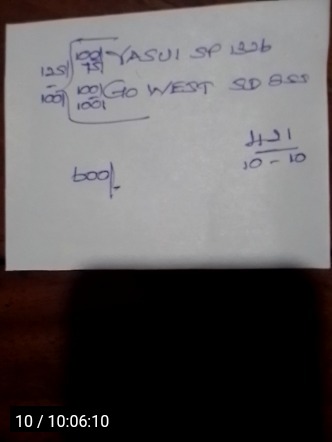 100/75 YASUI SP 1226
125/-
100/
100/100/ GO WEST SD 855
421
10-10
600/-
10 / 10:06:10